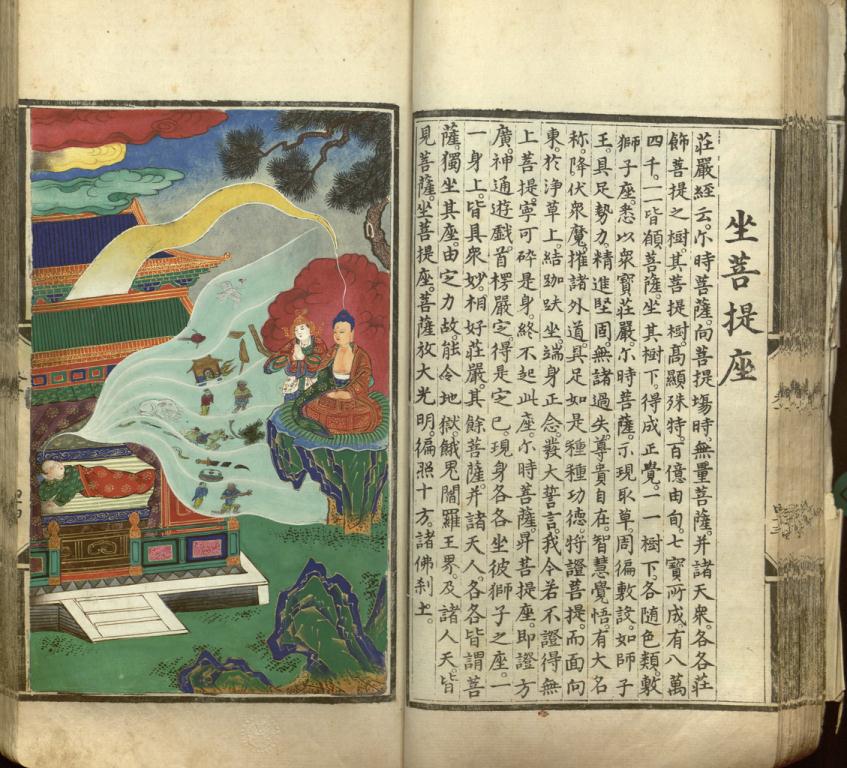 坐菩提座
莊嚴經云。尒時菩薩。向菩提塲時。無量菩薩。并諸天衆。各各莊
飾菩提之樹。其菩提樹。高顯殊特。百億由旬。七寶所成。有八萬
四千。一一皆願菩薩。坐其樹下。得成正覺。一一樹下。各随色類。敷
獅子座。悉以衆寶莊嚴。尒時菩薩。示現取草。周徧敷設。如師子
王。具足勢力。精進堅固。無諸過失。尊貴自在。智慧覺悟。有大名
称。降伏衆魔。摧諸外道。具足如是種種功德。将證菩提。而面向
東。於淨草上。結跏趺坐。端身正念。發大誓言。我今若不證得無
上菩提。寧可碎是身。終不起此座。尒時菩薩。昇菩提座。即證方
廣。神通遊戲。首楞嚴定。得是定已。現身各各坐彼獅子之座。一
一身上。皆具衆妙。相好莊嚴。其餘菩薩。并諸天人。各各皆謂菩
薩。獨坐其座。由定力故。能令地獄。餓鬼。閻羅王界。及諸人天。皆
見菩薩。坐菩提座。菩薩放大光明。徧照十方。諸佛刹土。